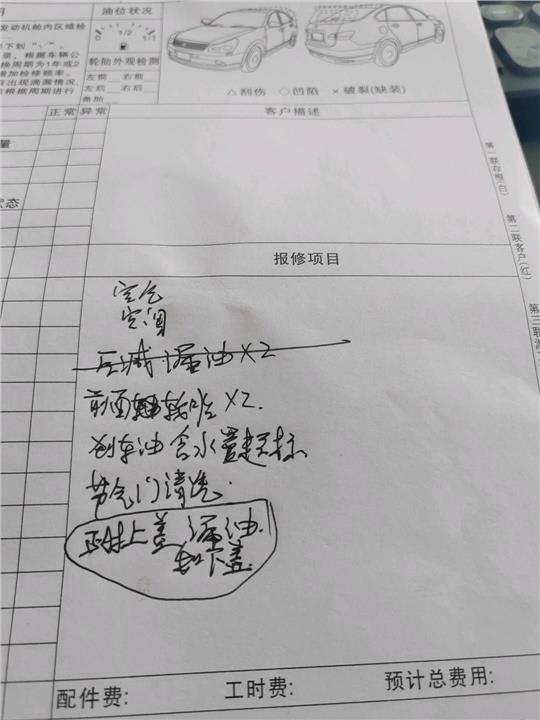 油位状况
发动机舱内区域检
0 1/2 1/1
轮胎外观检测
左前 右前
左后 右后
备胎
录，根据车辆公
换周期为1年或2
增加检修频率。
有出现滴漏情况，
根据周期进行
△刮伤 ○凹陷 ×破裂(缺装)
正常 异常
客户描述
量
状态
第一联存根(白)
第二联客户(红)
第三联
报修项目
空气
空调
后减漏油X2
前面 X2.
刹车油含水量超标
节气门清洗.
正时上盖漏油.
和下盖.
配件费:
工时费:
预计总费用: